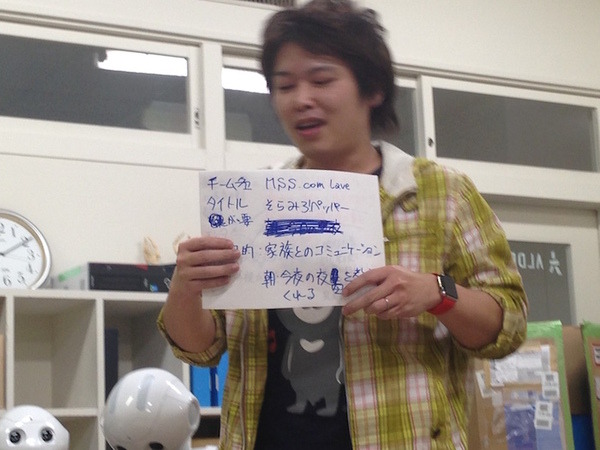 チーム名 MSS.com Lave
タイトル そらみろペッパー
概要
的・家族とのコミュニケーション
朝 今夜の夜
くれる
ALD